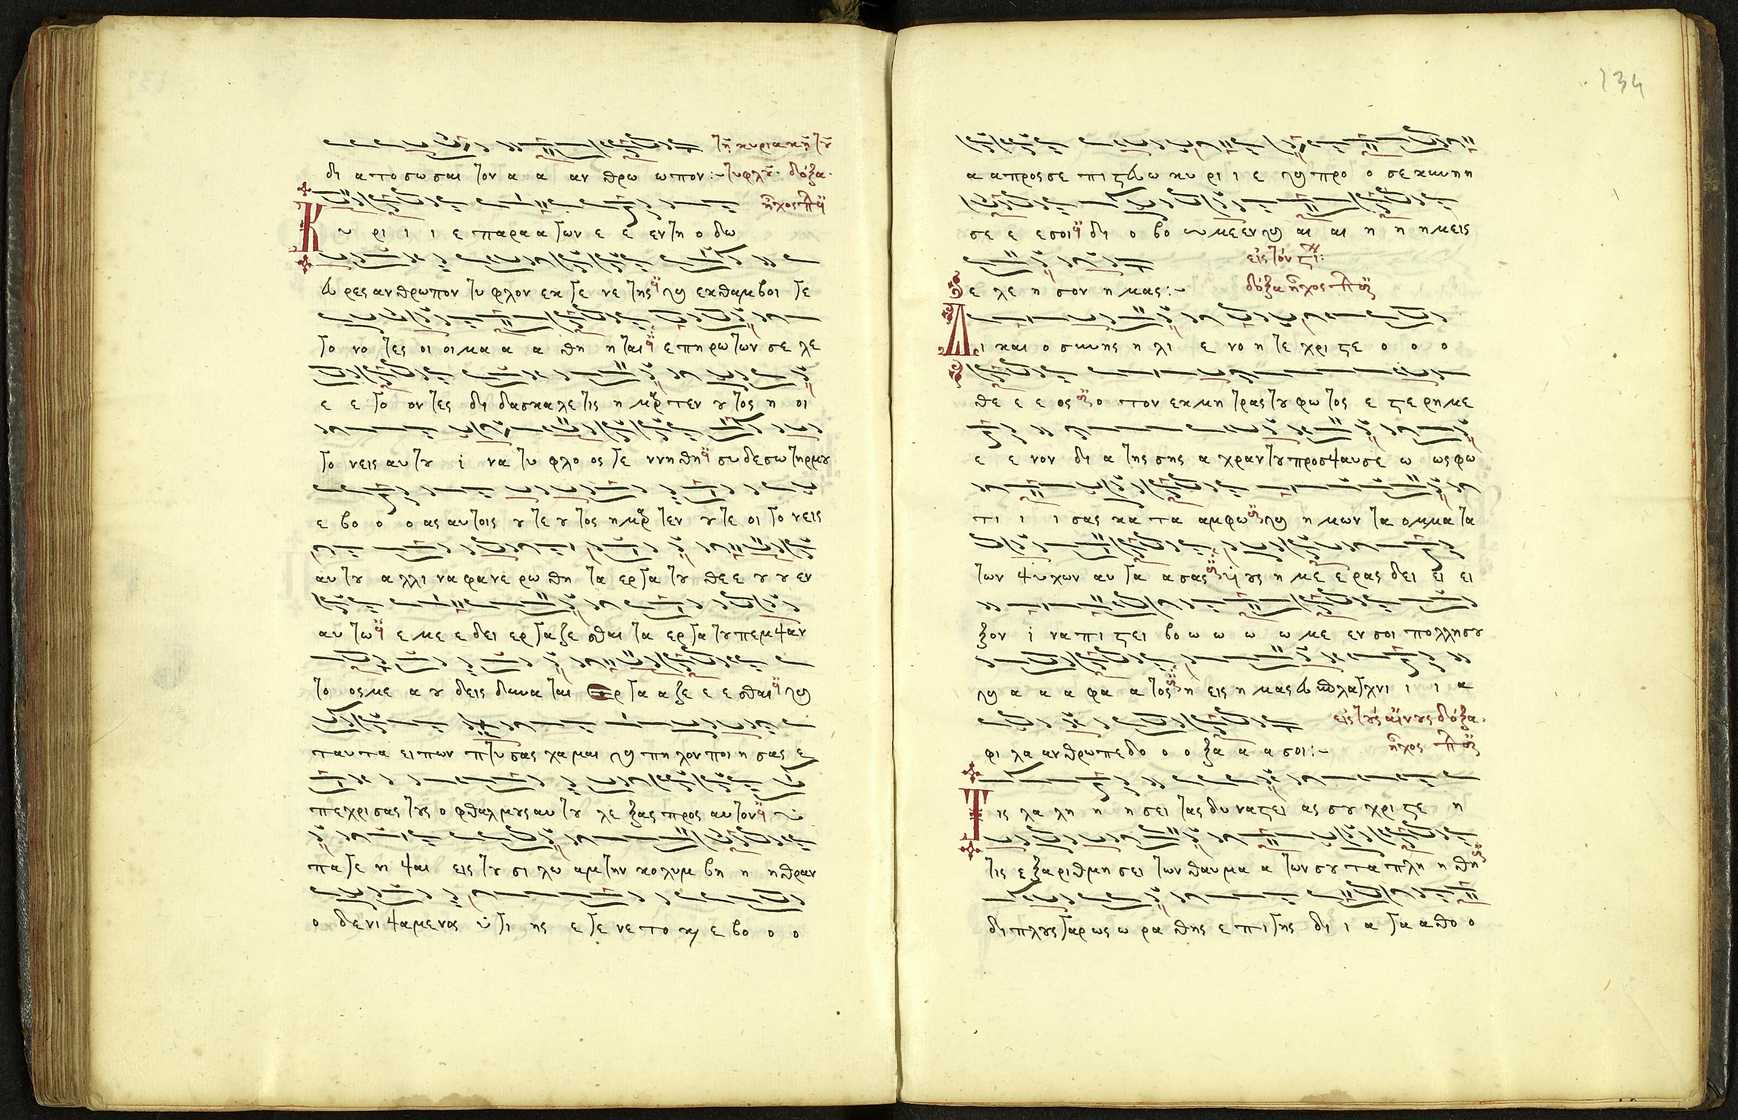 δι α πο σω σαι τον α α αν θρω ω πον:~ τῇ κυριακῇ τοῦ τυφλοῦ. δόξα.
ἦχος πλ δ
Κ υ ρι ι ι ε παρα α γων ε ε εν τη ο δω
ευ ρες ανθρωπον τυ φλον εκ γε νε της και εκθαμβοι γε
γο νο τες οι οι μα α α θη η ται επηρωτων σε λε
ε ε γο ον τες δι δασκαλε τις η μαρτεν ου τος η οι
γο νεις αυ του ι να τυ φλο ος γε ννηθη συ δε σωτηρ μου
ε βο ο ο ας αυτοις ου τε ου τος ημαρ τεν ου τε οι γο νεις
αυ του αλλ ι να φανε ρω θη τα εργα του θε ε ου ου εν
αυ τω ε με ε δει εργαζε σθαι τα εργα του πεμψαν
το ος με α ου δεις δυνα ται ερ γα α ζε ε ε σθαι και
ταυτα ει πων πτυ σας χα μαι και πηλον ποι η σας ε
πεχρισας τους ο φθαλμους αυ του λε ξας προς αυτον υ
πα γε νι ψαι εις του σι λω αμ την κολυμ βη η ηθραν
ο δε νι ψαμενος υ γι ης ε γε νετο και ε βο ο ο
134
α α προς σε πι στευ ω κυ ρι ι ε και προ ο σε κυνη
σε ε ε σοι δι ο βο ω μεεν και αι αι η η ημεις
ε λε η σον η μας:~ εἰς τὸν στί:
δόξα ἦχος πλ δ
Δι και ο συνης η λι ε νο η τε χρι στε ο ο ο
θε ε ε ος ο τον εκ μη τρας του φω τος ε στε ρη με
ε ε νον δι α της σης α χραντου προσψαυσε ω ως φω
τι ι ι σας κα τα αμφω και η μων τα ομμα τα
των ψυχων αυ γα α σας υιους η με ε ρας δει ει ει
ξον ι να πι στει βο ω ω ω ω με εν σοι πολλη σου
και α α α φα α τος η εις η μας ευ σπλαγχνι ι ι α
φι λα ανθρωπε δο ο ο ξα α α σοι:~ εἰς τοὺς αἴνους δόξα.
ἦχος πλ δ
Τ ις λα λη η η σει τας δυναστει ας σου χρι στε η
τις ε ξαριθμη σει των θαυμα α των σου τα πλη η θη
διπλους γαρ ως ω ρα θης ε πι γης δι ι α γα α θο ο